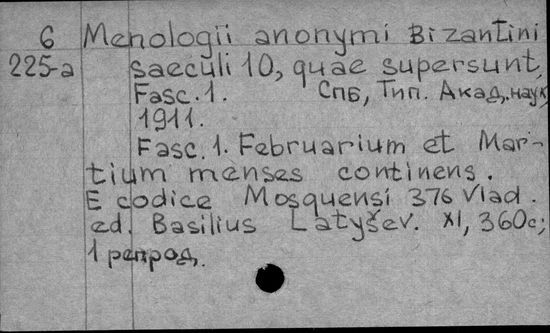 6 Menologii anonymi Bizantini
225-а saeculi 10, quae supersunt,
Fasc. 1. Спб, Тип. Акад. наук,
1911.
Fasc. 1. Februarium et Mar-
tium menses continens.
E codice Mosquensi 376 Vlad.
ed. Basilius Latyšev. XI, 360с;
1 репрод.